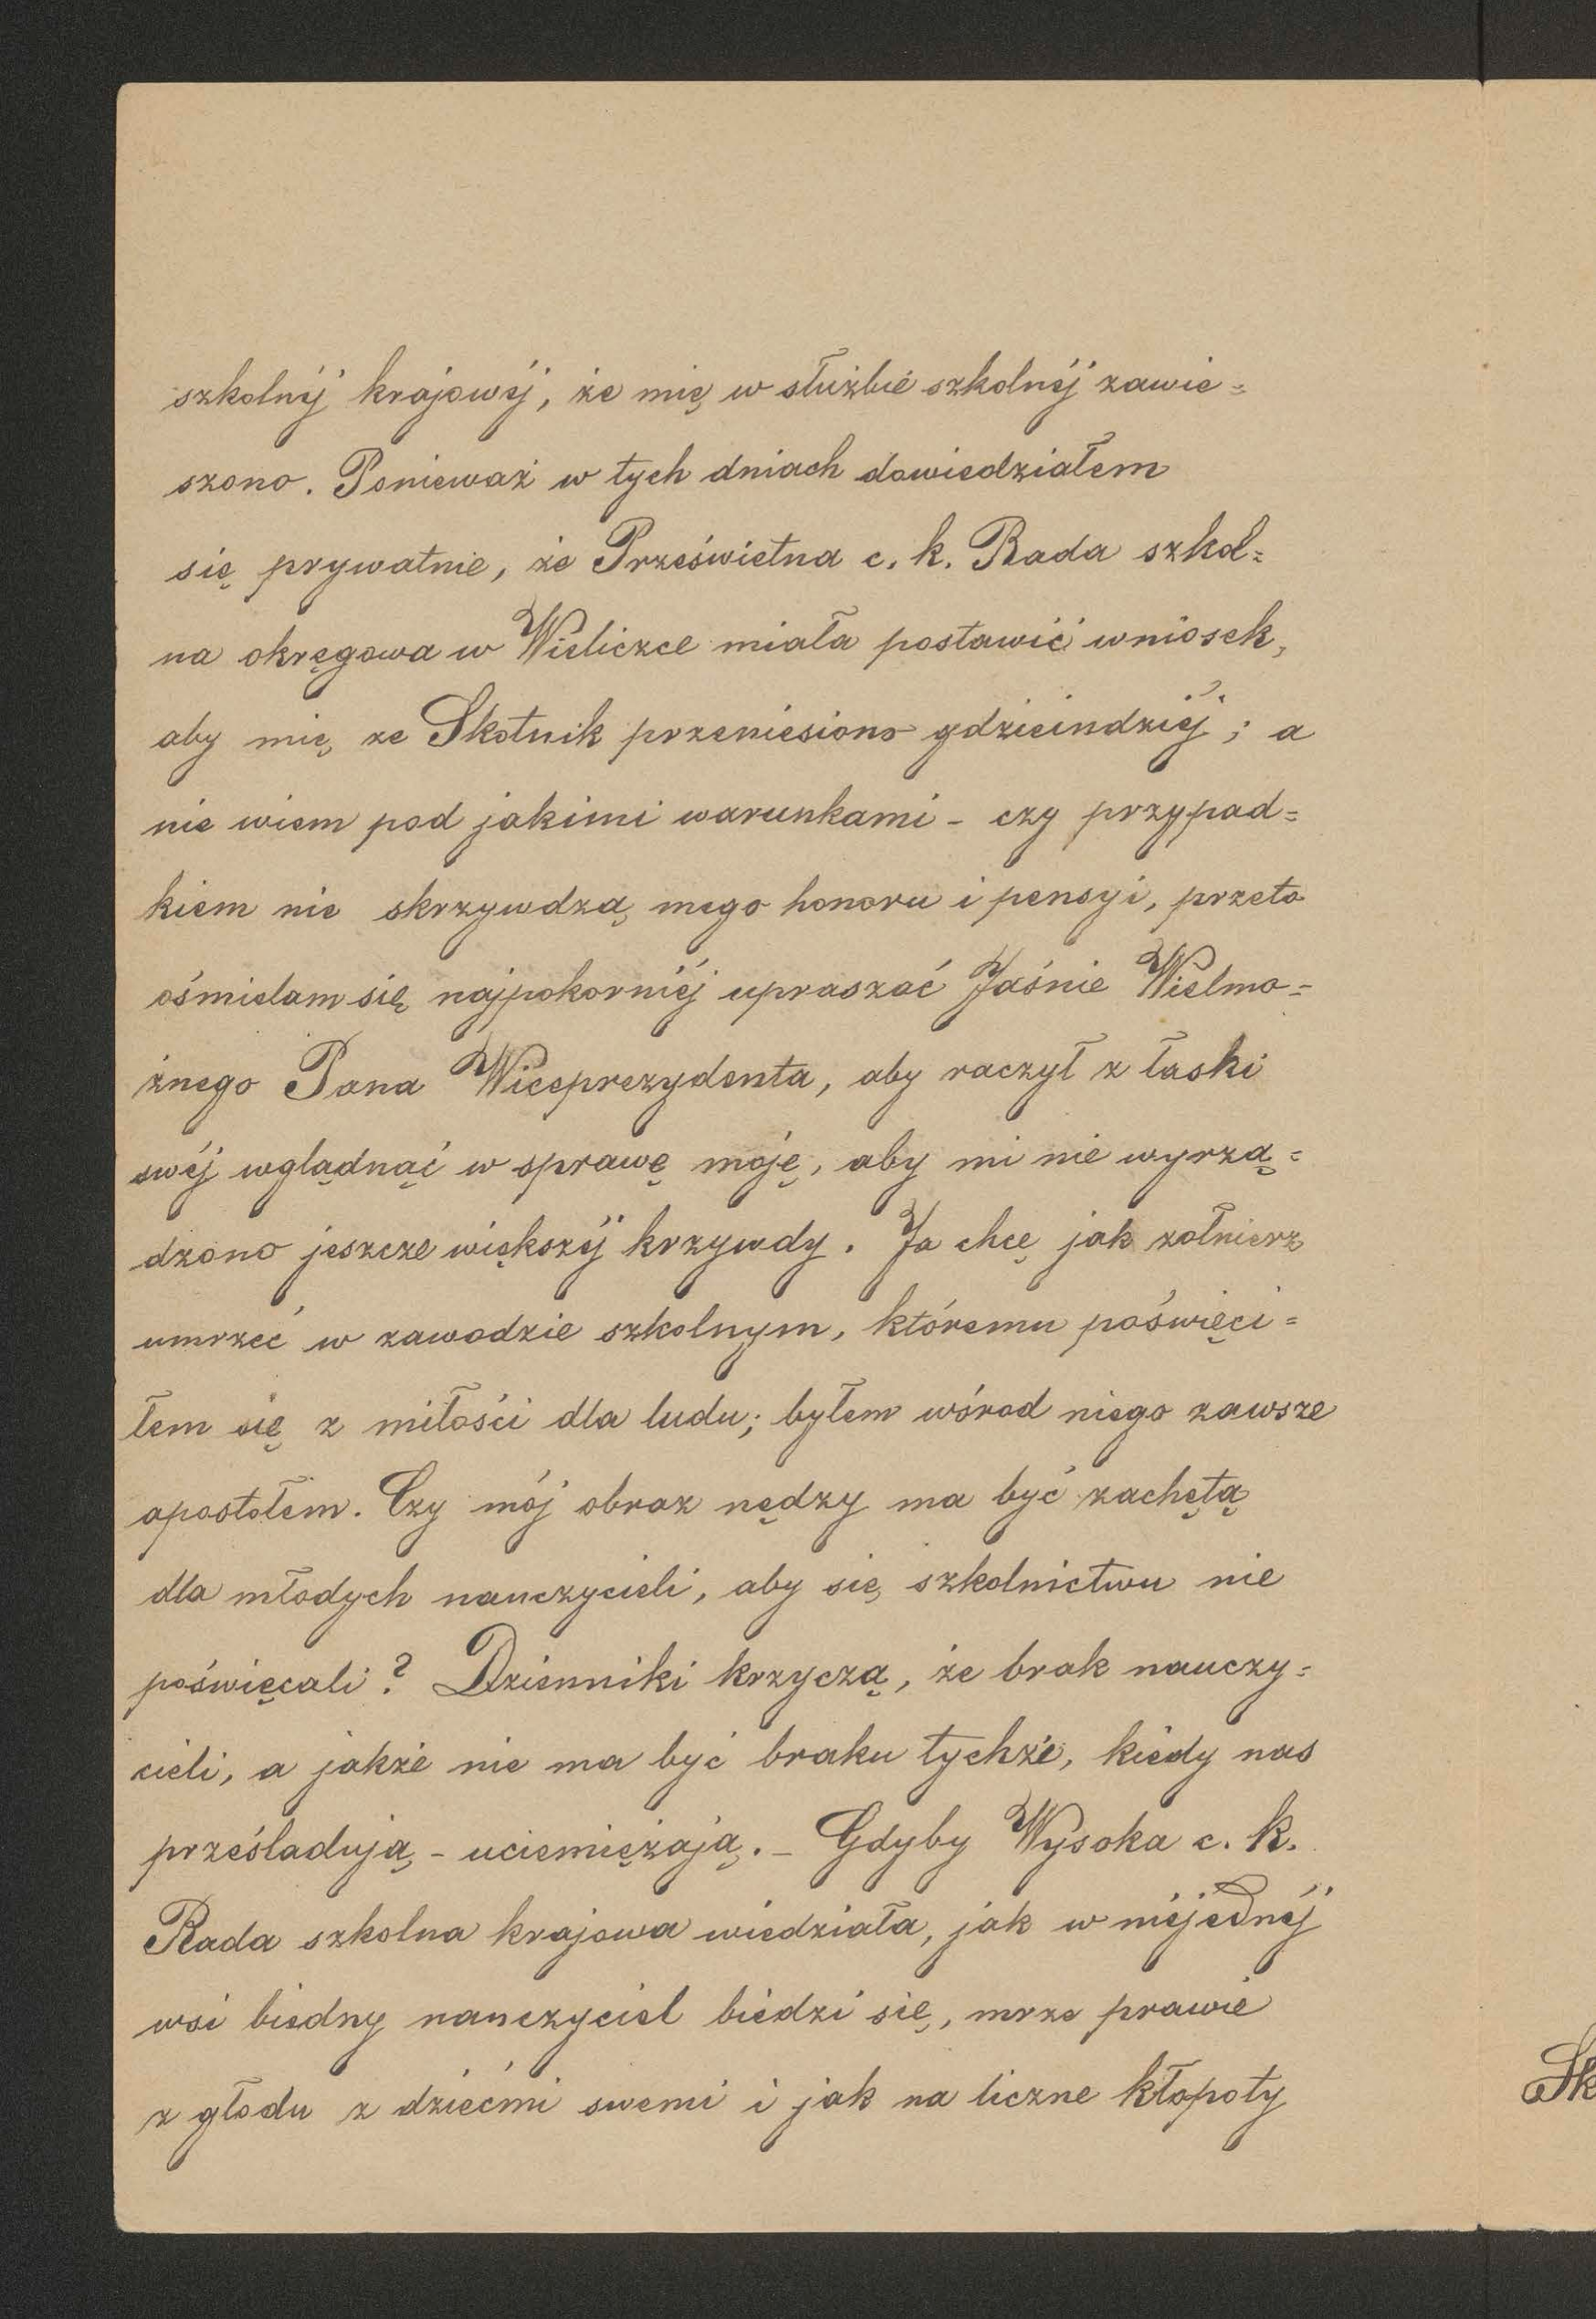 szkolnéj krajowéj, że mię w służbie szkolnéj zawie=
szono. Ponieważ w tych dniach dowiedziałem
się prywatnie, że Prześwietna c. k. Rada szkol=
na okręgowa w Wieliczce miała postawić wniosek,
aby mię ze Skotnik przeniesiono gdzieindziéj; a
nie wiem pod jakimi warunkami - czy przypad=
kiem nie skrzywdzą mego honoru i pensyi, przeto
ośmielam się najpokorniéj upraszać Jaśnie Wielmo=
żnego Pana Wiceprezydenta, aby raczył z łaski
swéj wglądnąć w sprawę moję, aby mi nie wyrzą=
dzono jeszcze większéj krzywdy. Ja chcę jak żołnierz
umrzeć w zawodzie szkolnym, któremu poświęci=
łem się z miłości dla ludu; byłem wśrod niego zawsze
apostołem. Czy mój obraz nędzy ma być zachętą
dla młodych nauczycieli, aby się szkolnictwu nie
poświęcali? Dzienniki krzyczą, że brak nauczy=
cieli, a jakże nie ma być braku tychże, kiedy nas
prześladują - uciemiężają. - Gdyby Wysoka c. k.
Rada szkolna krajowa wiedziała, jak w niéjednéj
wsi biedny nauczyciel biédzi się, mrze prawie
z głodu z dziećmi swemi i jak na liczne kłopoty
Sk